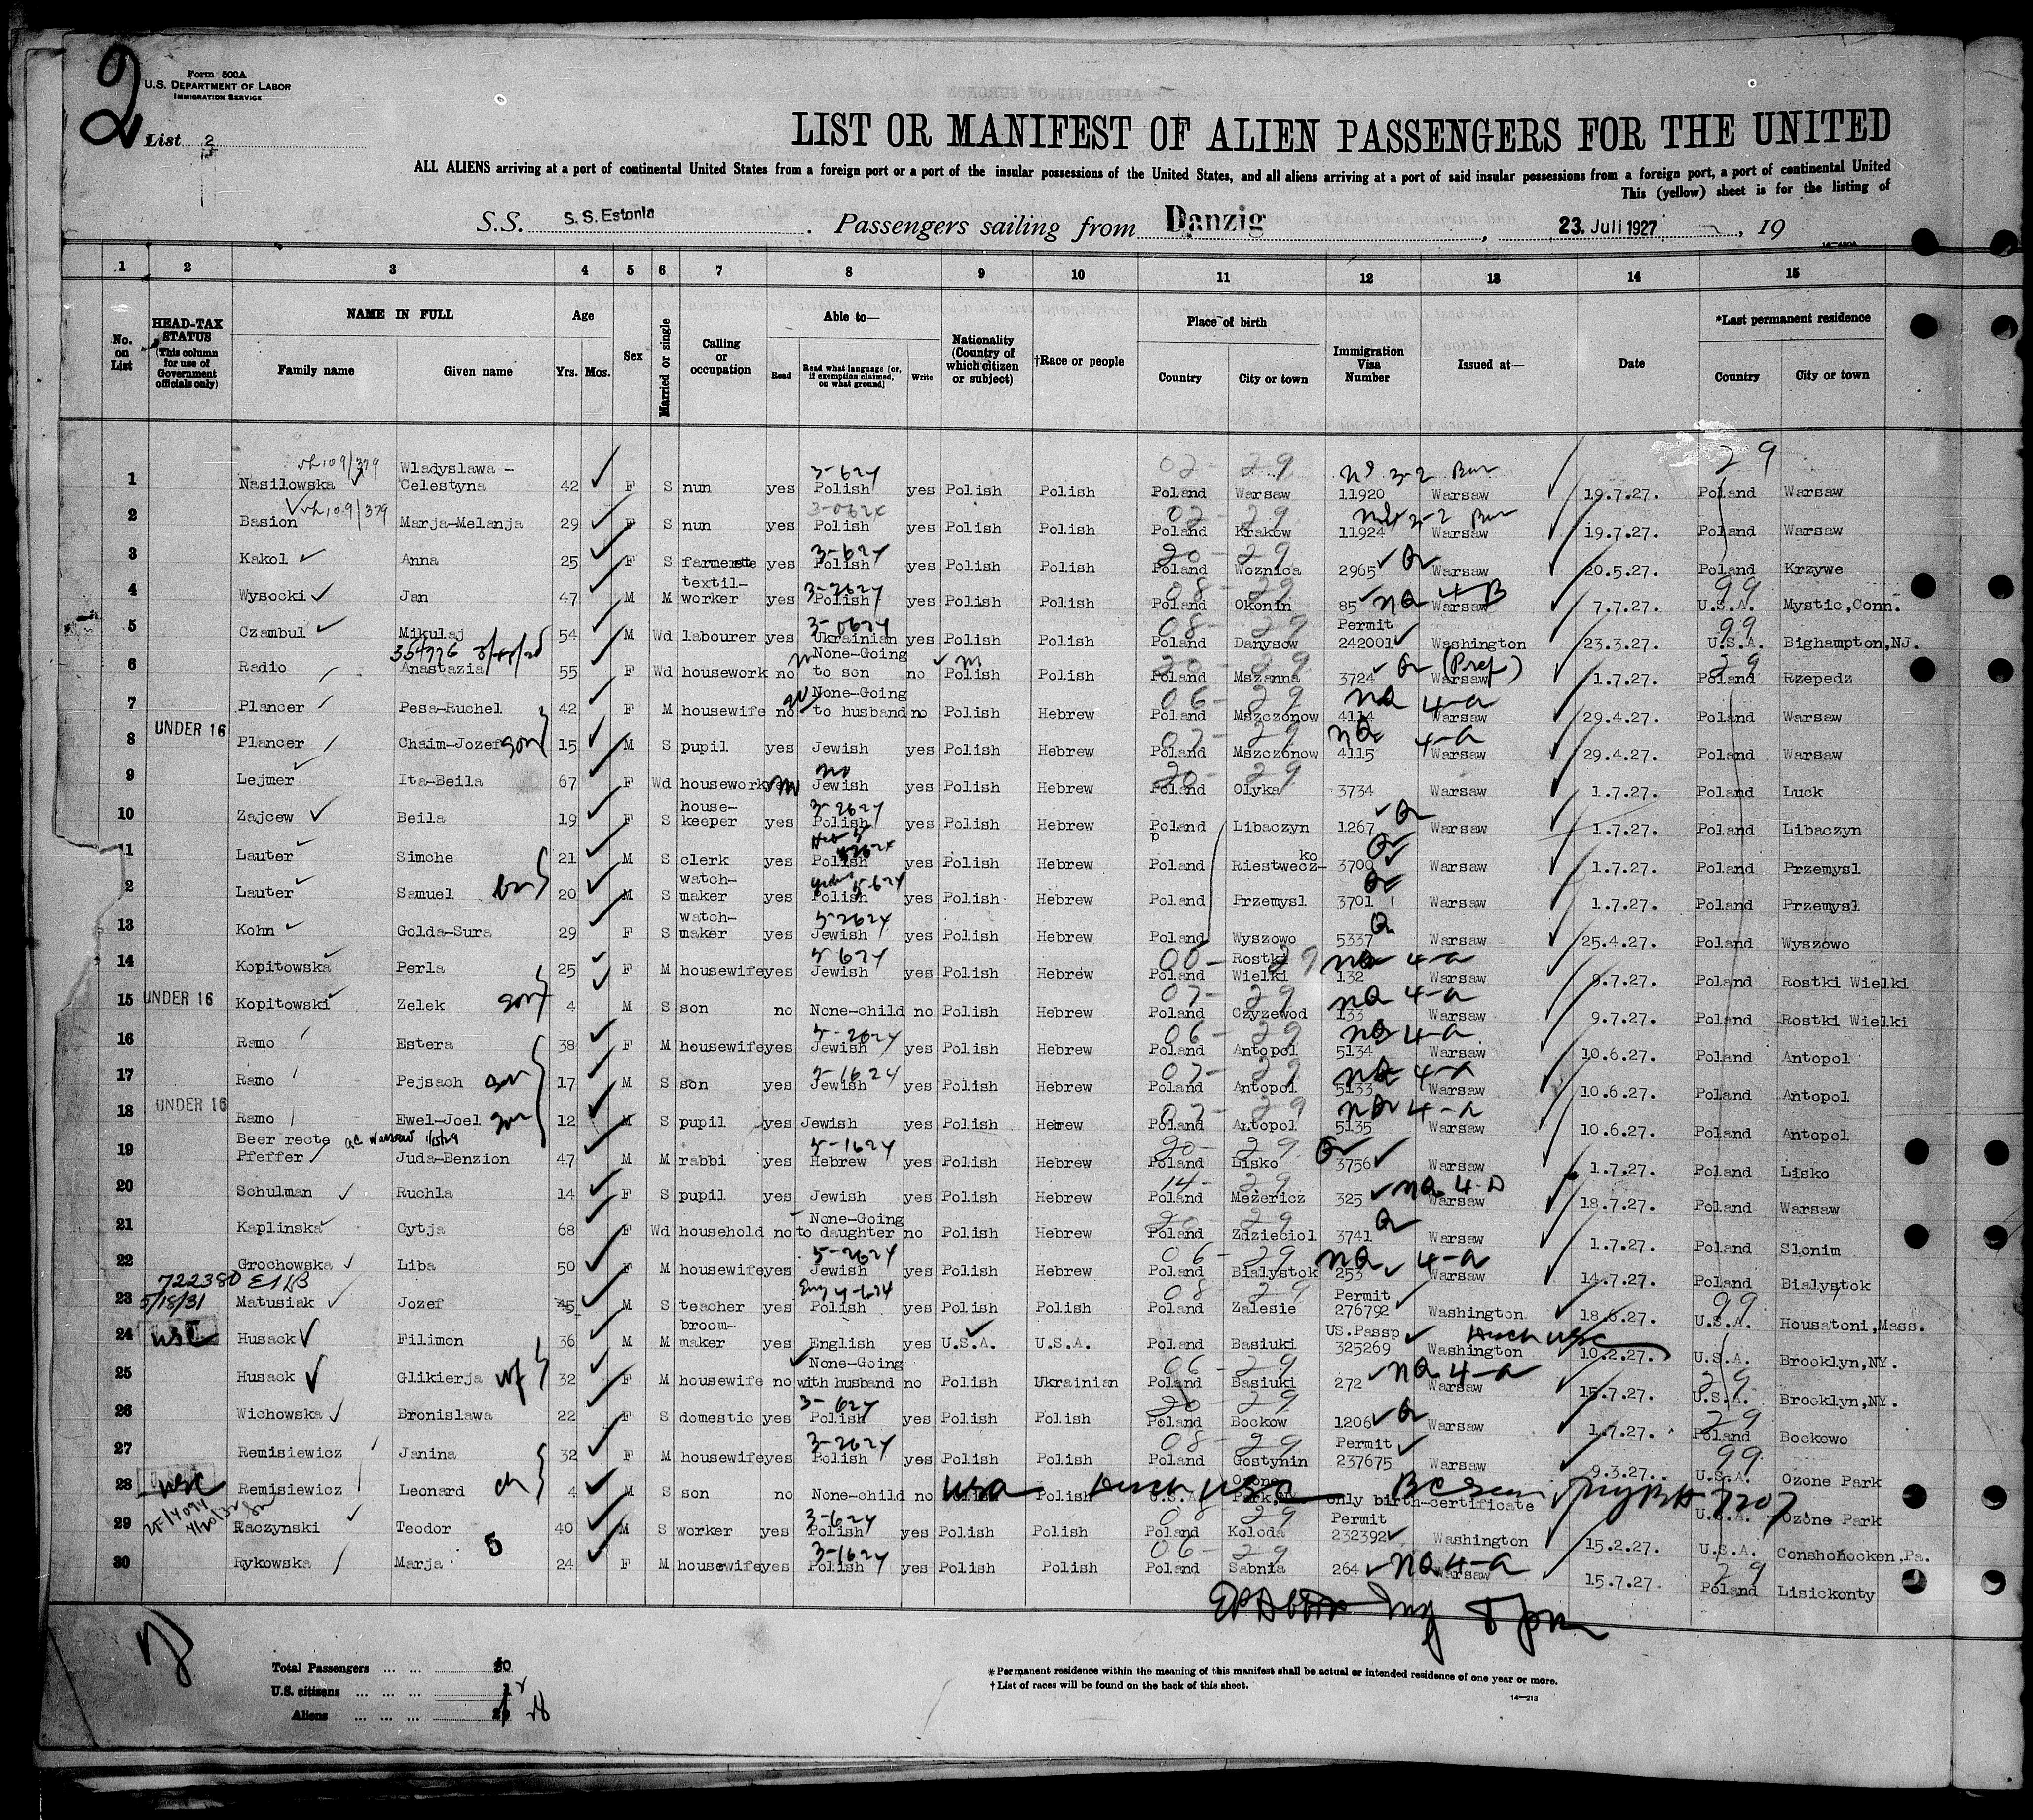 2
Form 500A
U.S. DEPARTMENT OF LABOR
IMMIGRATION SERVICE
List 2
LIST OR MANIFEST OF ALIEN PASSENGERS FOR THE UNITED
ALL ALIENS arriving at a port of continental United States from a foreign port or a port of the insular possessions of the United States, and all aliens arriving at a port of said insular possessions from a foreign port, a port of continental United
This (yellow) sheet is for the listing of
S.S. S.S.Estonia . Passengers sailing from Danzig , 23. Juli 1927 , 19
14—480A
1 2 3 4 5 6 7 8 9 10 11 12 13 14 15
No. on List HEAD-TAX STATUS (This column for use of Government officials only) NAME IN FULL Family name Given name Age Yrs. Mos. Sex Married or single Calling or occupation Able to— Read Read what language [or, if exemption claimed, on what ground] Write Nationality (Country of which citizen or subject) †Race or people Place of birth Country City or town Immigration Visa Number Issued at— Date *Last permanent residence Country City or town
1 Nasilowska Wladyslawa - Celestyna 42 F S nun yes Polish yes Polish Polish Poland Warsaw 11920 Warsaw 19.7.27. Poland Warsaw
2 Basion Marja-Melanja 29 F S nun yes Polish yes Polish Polish Poland Krakow 11924 Warsaw 19.7.27. Poland Warsaw
3 Kakol Anna 25 F S farmerette yes Polish yes Polish Polish Poland Woznica 2965 Warsaw 20.5.27. Poland Krzywe
4 Wysocki Jan 47 M M textil-worker yes Polish yes Polish Polish Poland Okonin 85 Warsaw 7.7.27. U.S.A. Mystic,Conn.
5 Czambul Mikulaj 54 M Wd labourer yes Ukrainian yes Polish Polish Poland Danysow Permit 242001 Washington 23.3.27. U.S.A. Bighampton,NJ.
6 Radio Anastazia 55 F Wd housework no None-Going to son no Polish Polish Poland Mszanna 3724 (Pref) Warsaw 1.7.27. Poland Rzepedz
7 Plancer Pesa-Ruchel 42 F M housewife no None-Going to husband no Polish Hebrew Poland Mszczonow 4114 NQ 4-a Warsaw 29.4.27. Poland Warsaw
8 UNDER 16 Plancer Chaim-Jozef son 15 M S pupil yes Jewish yes Polish Hebrew Poland Mszczonow 4115 NQ 4-a Warsaw 29.4.27. Poland Warsaw
9 Lejmer Ita-Beila 67 F Wd housework Jewish yes Polish Hebrew Poland Olyka 3734 Warsaw 1.7.27. Poland Luck
10 Zajcew Beila 19 F S house-keeper yes Polish yes Polish Hebrew Poland Libaczyn 1267 Warsaw 1.7.27. Poland Libaczyn
11 Lauter Simche 21 M S clerk yes Polish yes Polish Hebrew Poland Riestwecz-ko 3700 Warsaw 1.7.27. Poland Przemysl
2 Lauter Samuel 20 M S watch-maker yes Polish yes Polish Hebrew Poland Przemysl 3701 Warsaw 1.7.27. Poland Przemysl
13 Kohn Golda-Sura 29 F S watch-maker yes Jewish yes Polish Hebrew Poland Wyszowo 5337 Warsaw 25.4.27. Poland Wyszowo
14 Kopitowska Perla 25 F M housewife yes Jewish yes Polish Hebrew Poland Rostki Wielki 132 NQ 4-a Warsaw 9.7.27. Poland Rostki Wielki
15 UNDER 16 Kopitowski Zelek son 4 M S son no None-child no Polish Hebrew Poland Czyzewod 133 NQ 4-a Warsaw 9.7.27. Poland Rostki Wielki
16 Ramo Estera 38 F M housewife yes Jewish yes Polish Hebrew Poland Antopol 5134 NQ 4-a Warsaw 10.6.27. Poland Antopol
17 Ramo Pejsach son 17 M S son yes Jewish yes Polish Hebrew Poland Antopol 5133 NQ 4-a Warsaw 10.6.27. Poland Antopol
18 UNDER 16 Ramo Ewel-Joel son 12 M S pupil yes Jewish yes Polish Hebrew Poland Antopol 5135 NQ 4-a Warsaw 10.6.27. Poland Antopol
19 Beer recte Pfeffer Juda-Benzion 47 M M rabbi yes Hebrew yes Polish Hebrew Poland Lisko 3756 Warsaw 1.7.27. Poland Lisko
20 Schulman Ruchla 14 F S pupil yes Jewish yes Polish Hebrew Poland Mezericz 325 NQ 4-D Warsaw 18.7.27. Poland Warsaw
21 Kaplinska Cytja 68 F Wd household no None-Going to daughter no Polish Hebrew Poland Zdzieciol 3741 Warsaw 1.7.27. Poland Slonim
22 Grochowska Liba 50 F M housewife yes Jewish yes Polish Hebrew Poland Bialystok 253 NQ 4-a Warsaw 14.7.27. Poland Bialystok
722380
5/18/31
23 Matusiak Jozef 45 M S teacher yes Polish yes Polish Polish Poland Zalesie Permit 276792 Washington 18.6.27. U.S.A. Housatoni,Mass.
24 USC Husack Filimon 36 M M broom-maker yes English yes U.S.A. U.S.A. Poland Basiuki US.Passp 325269 Washington 10.2.27. U.S.A. Brooklyn,NY.
25 Husack Glikierja wf 32 F M housewife no None-Going with husband no Polish Ukrainian Poland Basiuki 272 NQ 4-a Warsaw 15.7.27. U.S.A. Brooklyn,NY.
26 Wichowska Bronislawa 22 F S domestic yes Polish yes Polish Polish Poland Bockow 1206 Warsaw 1.7.27. Poland Bockowo
27 Remisiewicz Janina 32 F M housewife yes Polish yes Polish Polish Poland Gostynin Permit 237675 Warsaw 9.3.27. U.S.A. Ozone Park
28 USC Remisiewicz Leonard ch 4 M S son no None-child no USA Polish U.S. Ozone Park only birth-certificate U.S.A. Ozone Park
29 Raczynski Teodor 40 M S worker yes Polish yes Polish Polish Poland Koloda Permit 232392 Washington 15.2.27. U.S.A. Conshohocken,Pa.
30 Rykowska Marja 24 F M housewife yes Polish yes Polish Polish Poland Sabnia 264 NQ 4-a Warsaw 15.7.27. Poland Lisickonty
Total Passengers ... ... 30
U.S. citizens ... ... ...
Aliens ... ... ...
*Permanent residence within the meaning of this manifest shall be actual or intended residence of one year or more.
†List of races will be found on the back of this sheet.
14—213